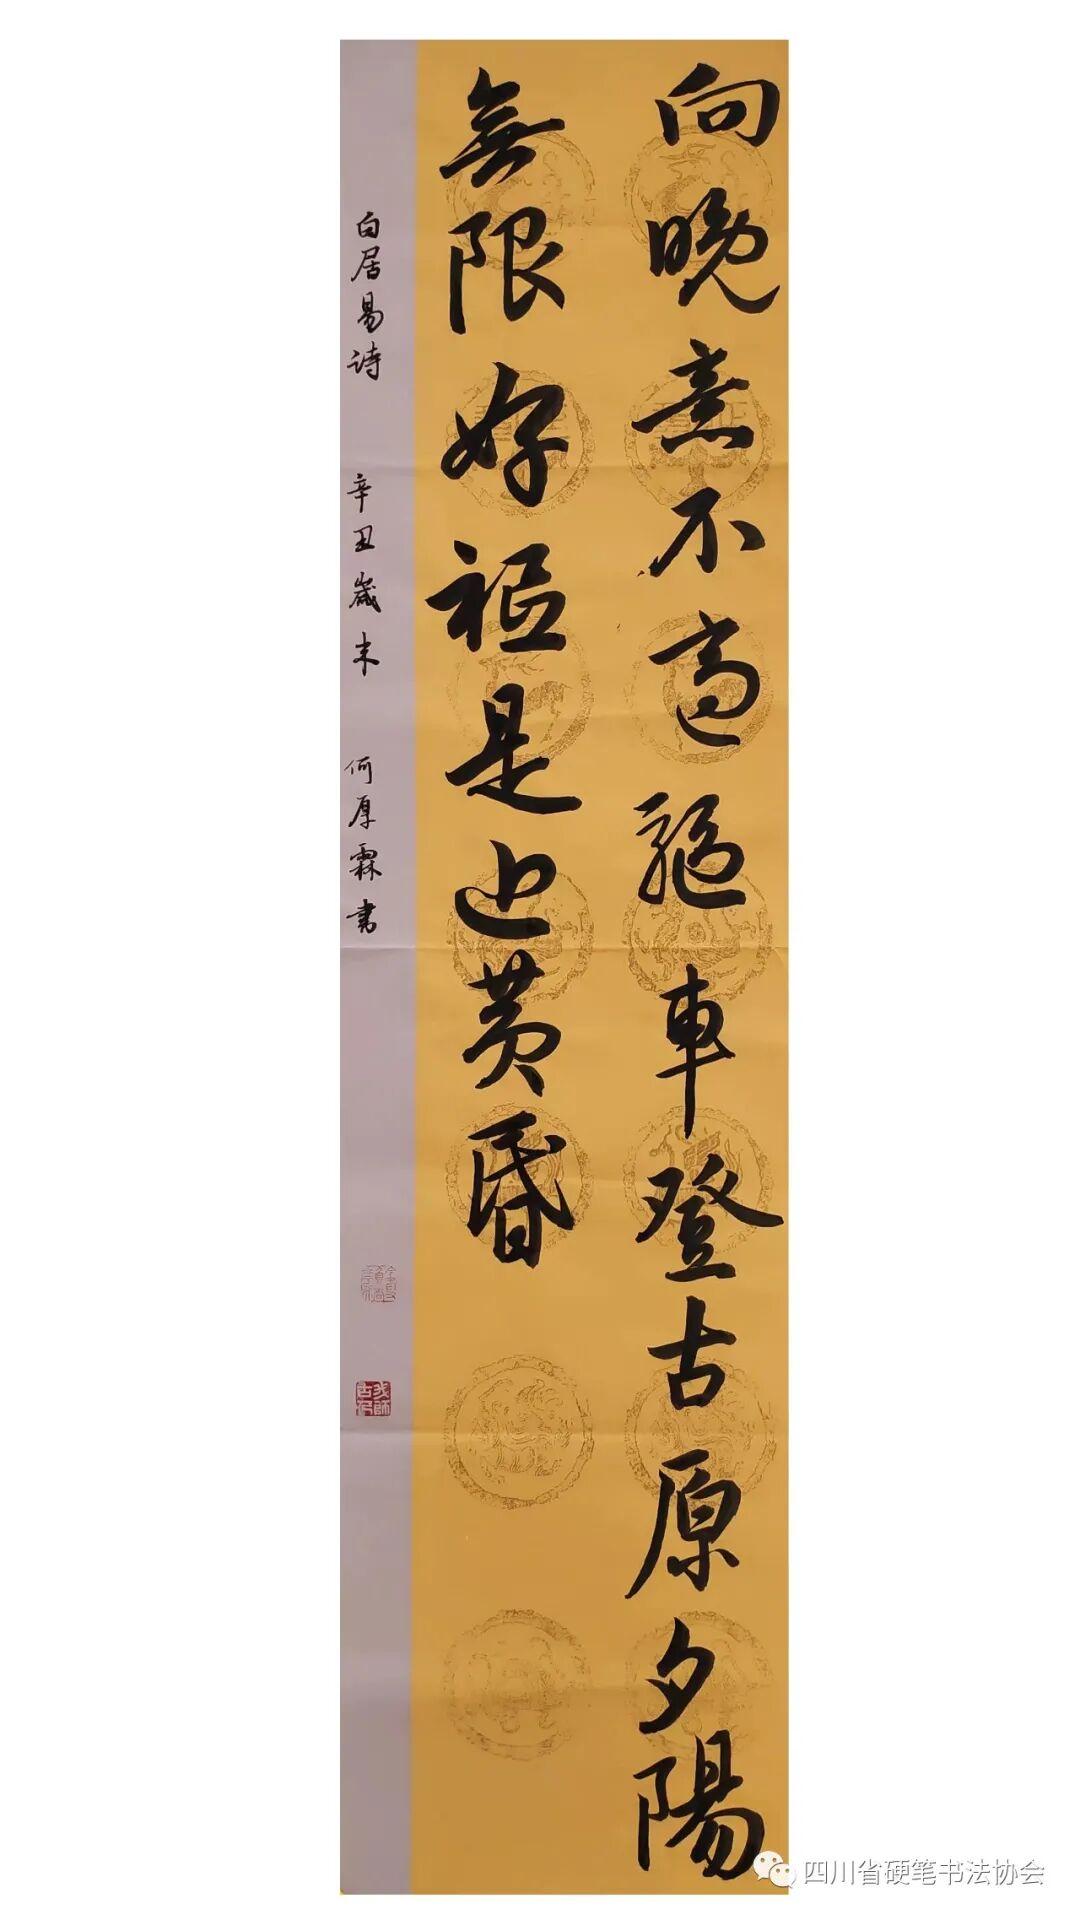 向晚意不適驅車登古原夕陽
無限好祗是近黄昏
白居易诗 辛丑歲末 何厚霖書
四川省硬笔书法协会